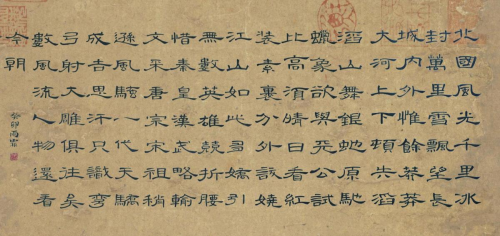 北國風光千里冰
封萬里雪飄望長
城內外惟餘莽莽
大河上下頓失滔
滔山舞銀蛇原馳
蠟象欲與天公試
比高須晴日看紅
裝素裹分外妖嬈
江山如此多嬌引
無數英雄競折腰
惜秦皇漢武略輸
文采唐宗宋祖稍
遜風騷一代天驕
成吉思汗只識彎
弓射大雕俱往矣
數風流人物還看
今朝
癸卯尚